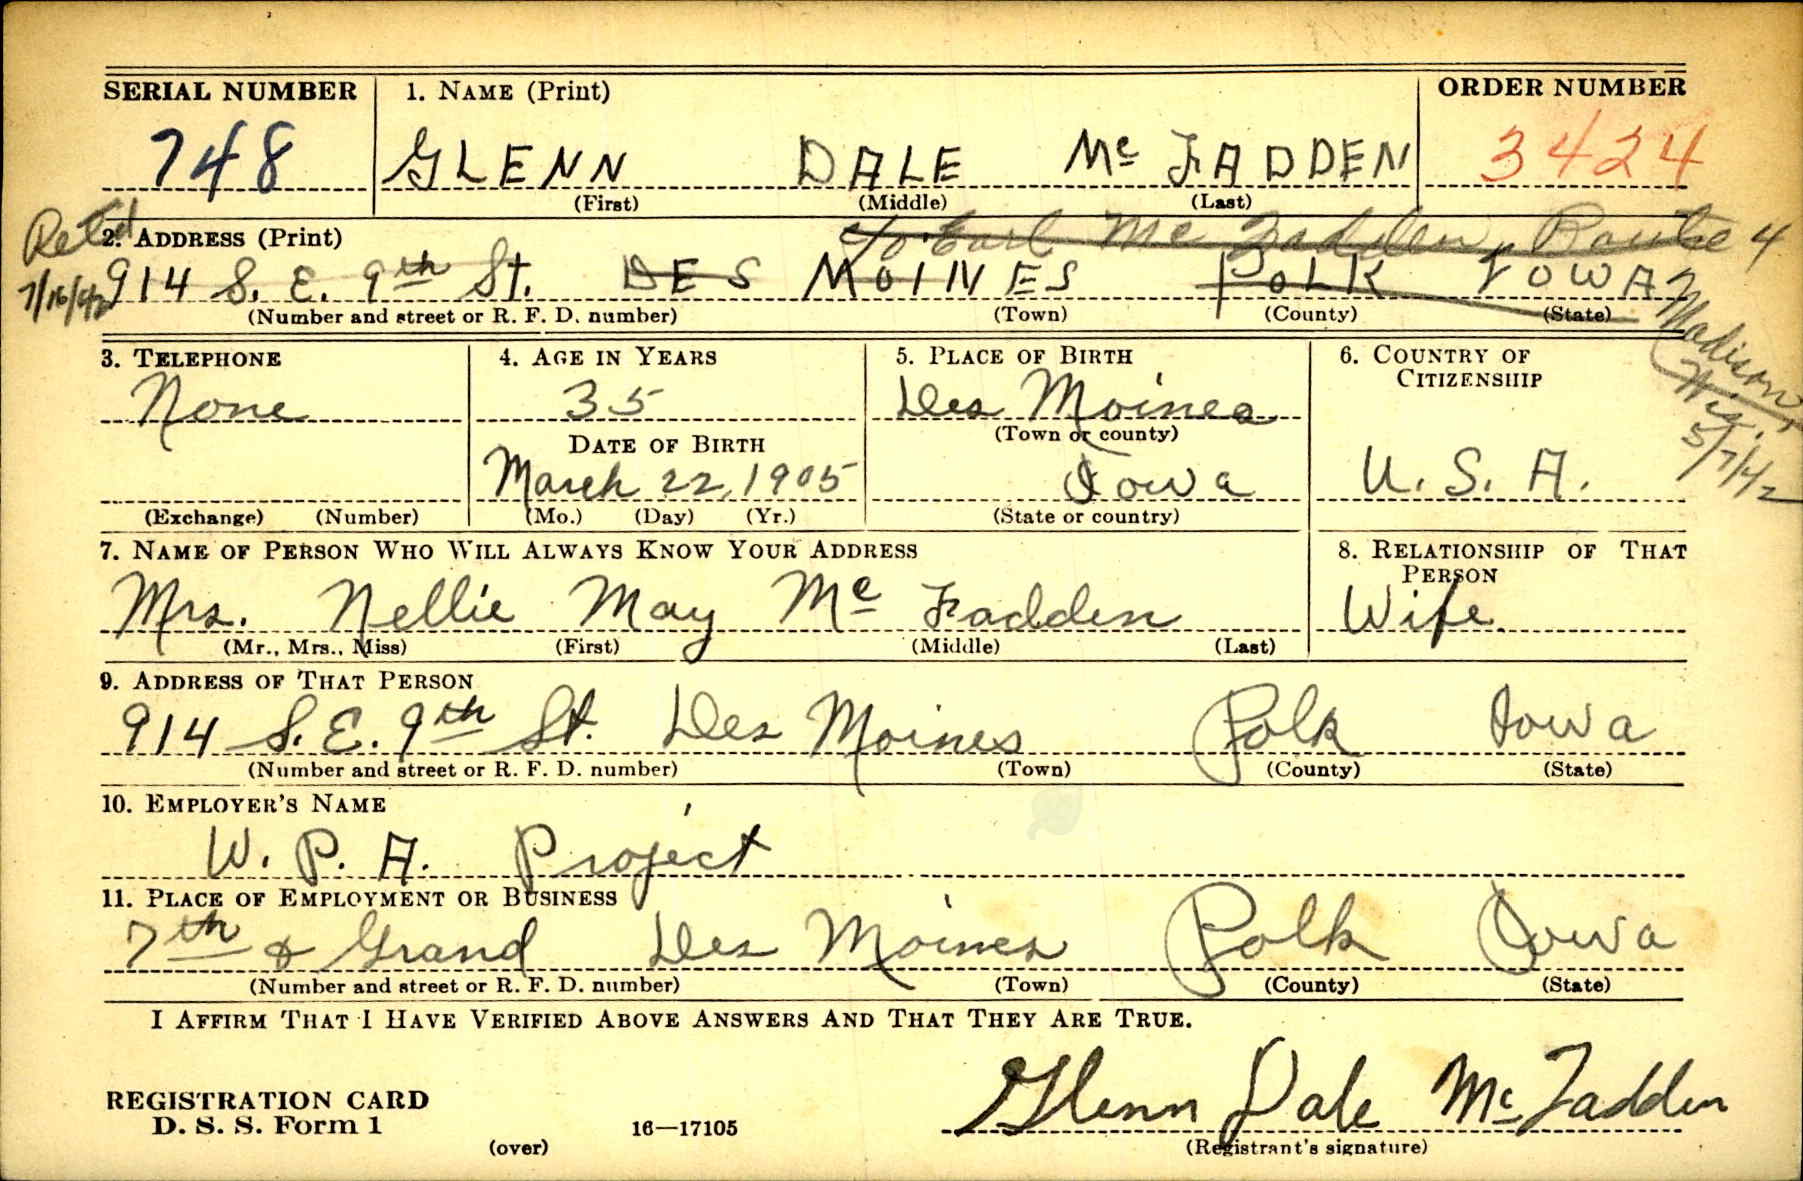 SERIAL NUMBER 1. NAME (Print) ORDER NUMBER
748 GLENN DALE Mc FADDEN 3424
(First) (Middle) (Last)
c/o Earl Mc Fadden, Route 4
Madison, Wis. 5/7/42
Ret'd 7/16/42
2. ADDRESS (Print)
914 S. E. 9th St. DES MOINES POLK IOWA
(Number and street or R. F. D. number) (Town) (County) (State)
3. TELEPHONE 4. AGE IN YEARS 5. PLACE OF BIRTH 6. COUNTRY OF CITIZENSHIP
None 35 Des Moines
DATE OF BIRTH (Town or county)
March 22, 1905 Iowa U. S. A.
(Exchange) (Number) (Mo.) (Day) (Yr.) (State or country)
7. NAME OF PERSON WHO WILL ALWAYS KNOW YOUR ADDRESS 8. RELATIONSHIP OF THAT PERSON
Mrs. Nellie May Mc Fadden Wife
(Mr., Mrs., Miss) (First) (Middle) (Last)
9. ADDRESS OF THAT PERSON
914 S. E. 9th St. Des Moines Polk Iowa
(Number and street or R. F. D. number) (Town) (County) (State)
10. EMPLOYER'S NAME
W. P. A. Project
11. PLACE OF EMPLOYMENT OR BUSINESS
7th & Grand Des Moines Polk Iowa
(Number and street or R. F. D. number) (Town) (County) (State)
I AFFIRM THAT I HAVE VERIFIED ABOVE ANSWERS AND THAT THEY ARE TRUE.
REGISTRATION CARD
D. S. S. Form 1 16—17105 Glenn Dale McFadden
(over) (Registrant's signature)